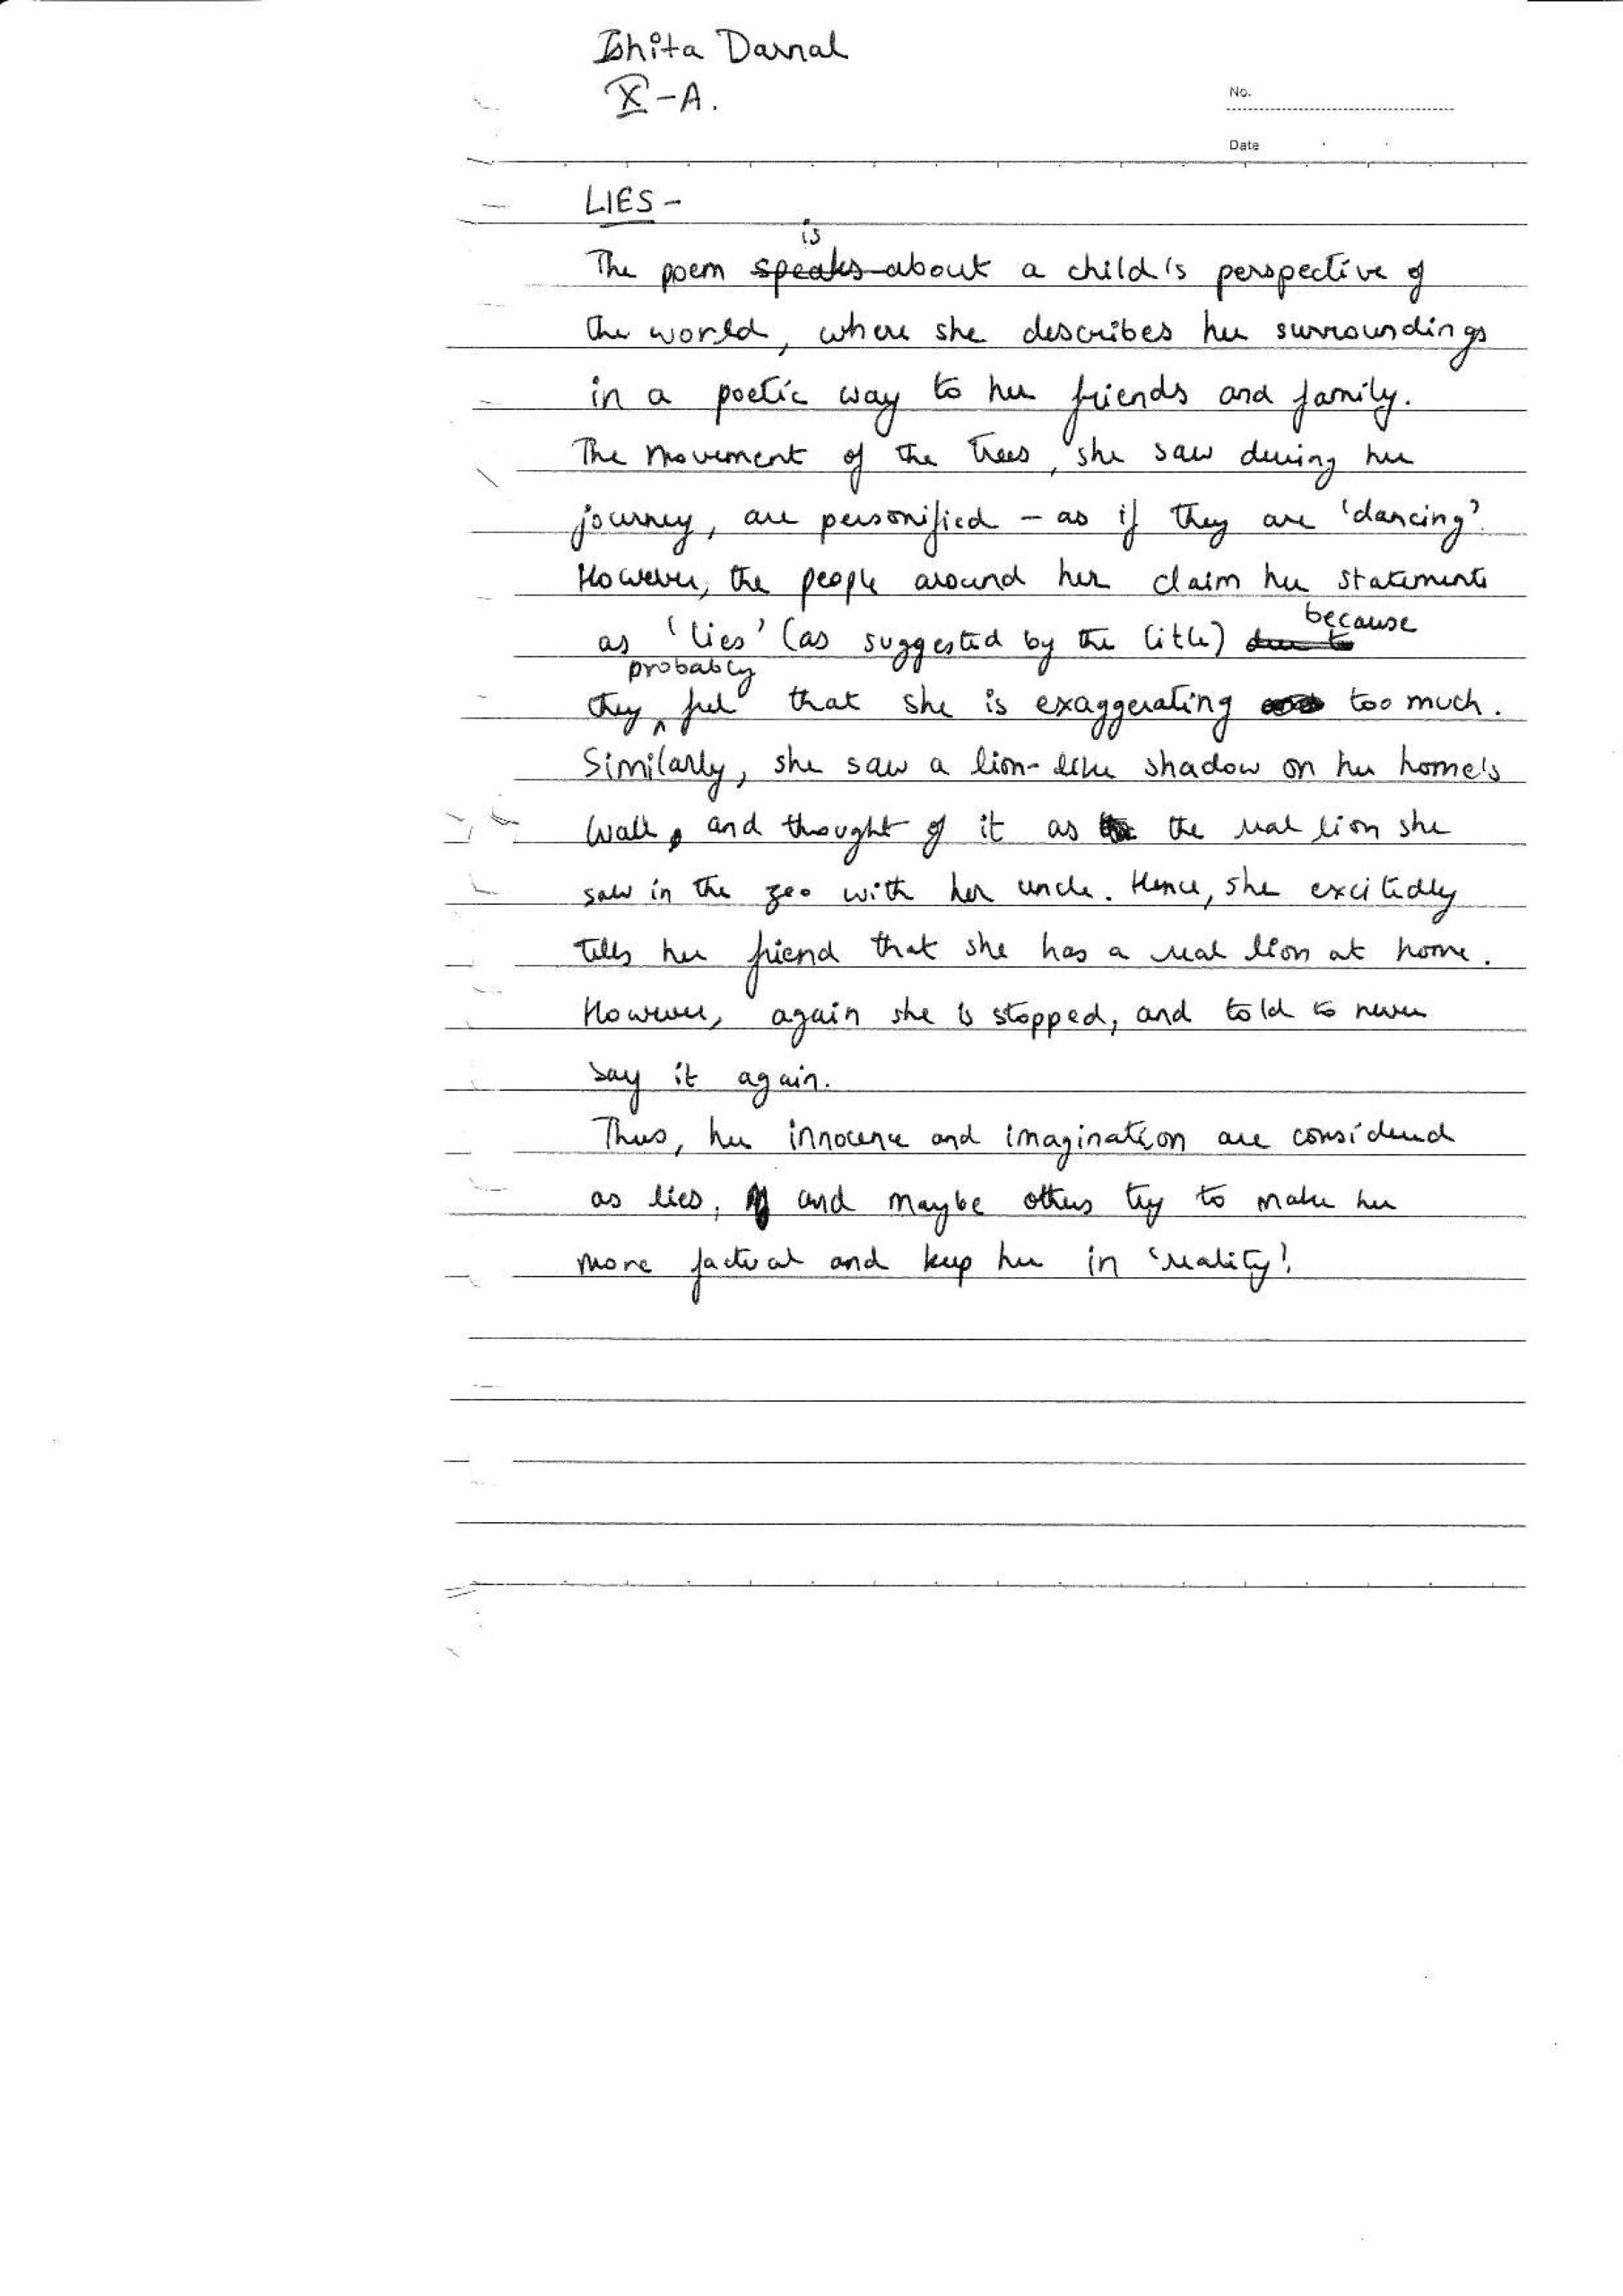 Ishita Darnal
X-A.
No.
Date
LIES -
is
The poem speaks about a child's perspective of
the world, where she describes her surroundings
in a poetic way to her friends and family.
The movement of the trees, she saw during her
journey, are personified - as if they are 'dancing'.
However, the people around her claim her statements
as 'lies' (as suggested by the title) due to because
probably
they feel that she is exaggerating too much.
Similarly, she saw a lion-like shadow on her home's
wall, and thought of it as the real lion she
saw in the zoo with her uncle. Hence, she excitedly
tells her friend that she has a real lion at home.
However, again she is stopped, and told to never
say it again.
Thus, her innocence and imagination are considered
as lies, and maybe others try to make her
more factual and keep her in 'reality'.